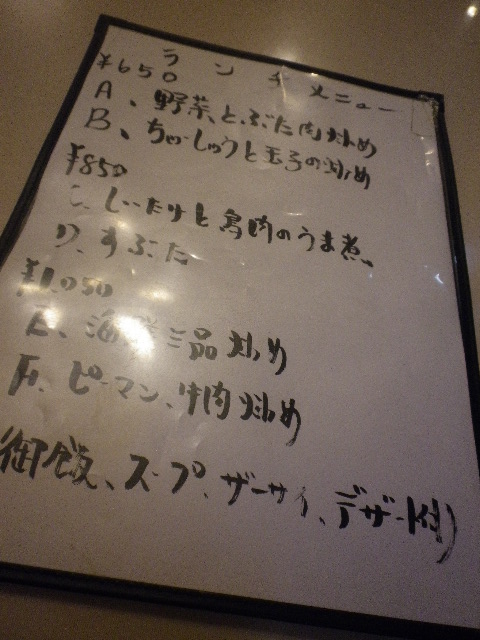 ランチメニュー
¥650
A、野菜とぶた肉炒め
B、ちゃーしゅうと玉子の炒め
¥850
C、しいたけと鳥肉のうま煮、
D、すぶた
¥1,050
E、海鮮三品炒め
F、ピーマン、牛肉炒め
御飯、スープ、ザーサイ、デザート付)